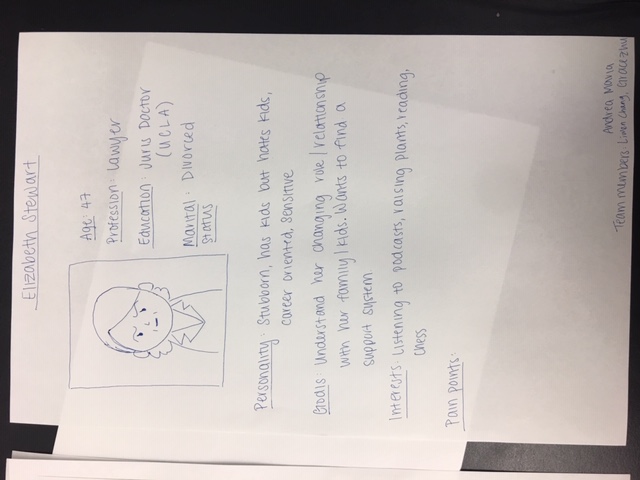 Elizabeth Stewart
Age: 47
Profession: Lawyer
Education: Juris Doctor
(UCLA)
Marital Status: Divorced
Personality: Stubborn, has kids but hates kids,
career oriented, sensitive
Goals: Understand her changing role/relationship
with her family/kids. Wants to find a
support system
Interests: Listening to podcasts, raising plants, reading,
chess
Pain points:
Andrea Maria
Team members: Limon Chang, Grace Zhu